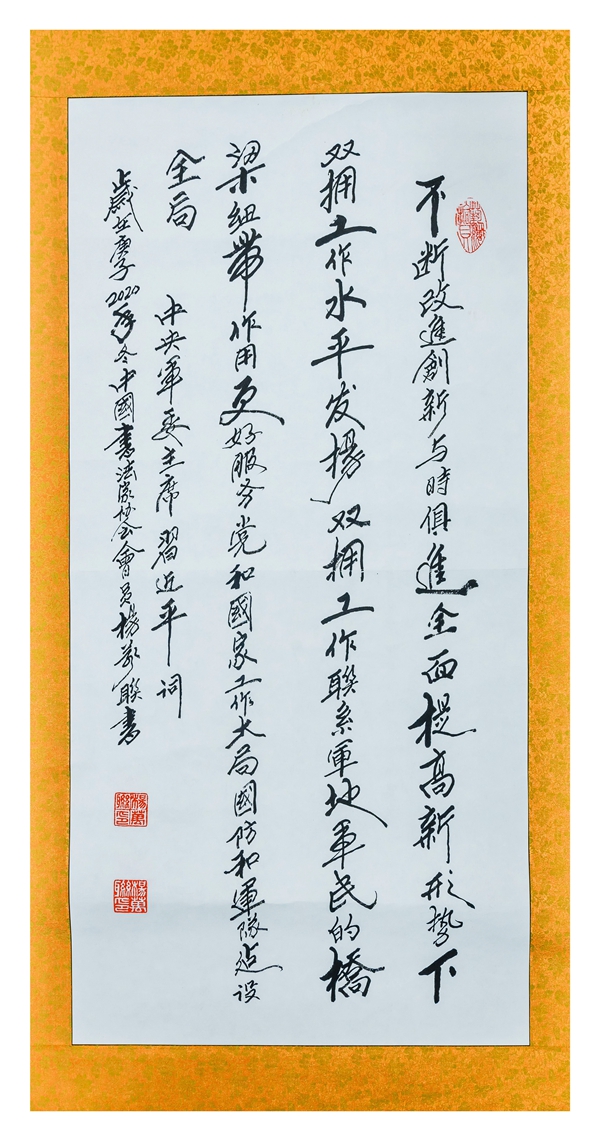 不断改進創新与時俱進全面提高新形势下
双拥工作水平发揚双拥工作聯系軍地军民的橋
梁紐帶作用更好服务党和國家工作大局國防和軍隊建设
全局
中央軍委主席習近平词
歲在庚子2020年冬中國書法家协会會员楊万聯書
楊萬聯印
楊萬聯印